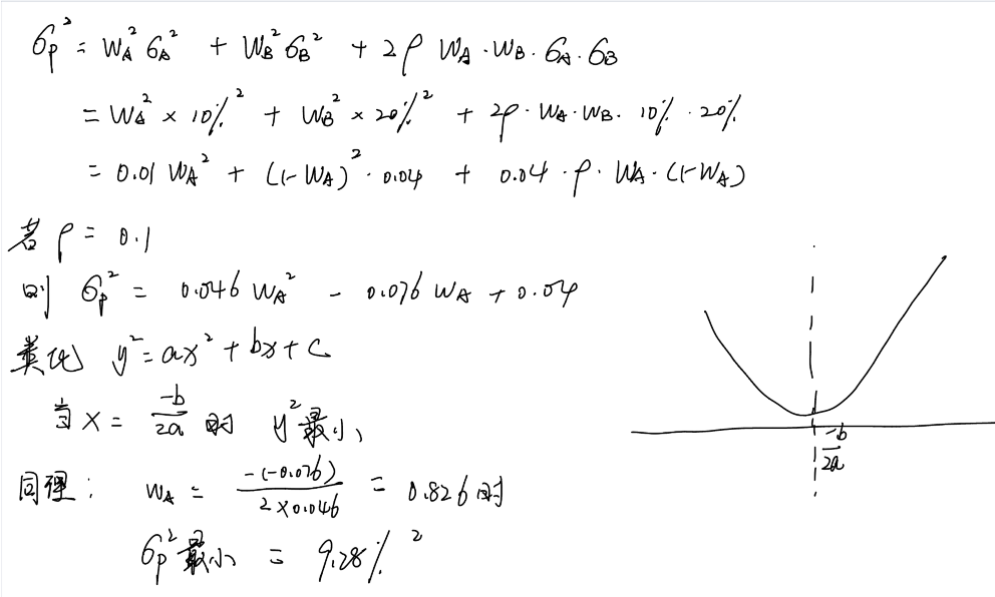 σp² = WA²σA² + WB²σB² + 2ρ WA·WB·σA·σB
= WA² × 10%² + WB² × 20%² + 2ρ·WA·WB·10%·20%
= 0.01 WA² + (1-WA)²·0.04 + 0.04·ρ·WA·(1-WA)
若 ρ = 0.1
则 σp² = 0.046 WA² - 0.076 WA + 0.04
类比 y² = ax² + bx + c
当 x = -b/2a 时 y² 最小
-b/2a
同理: WA = -(-0.076)/2×0.046 = 0.826 时
σp² 最小 = 9.28%²